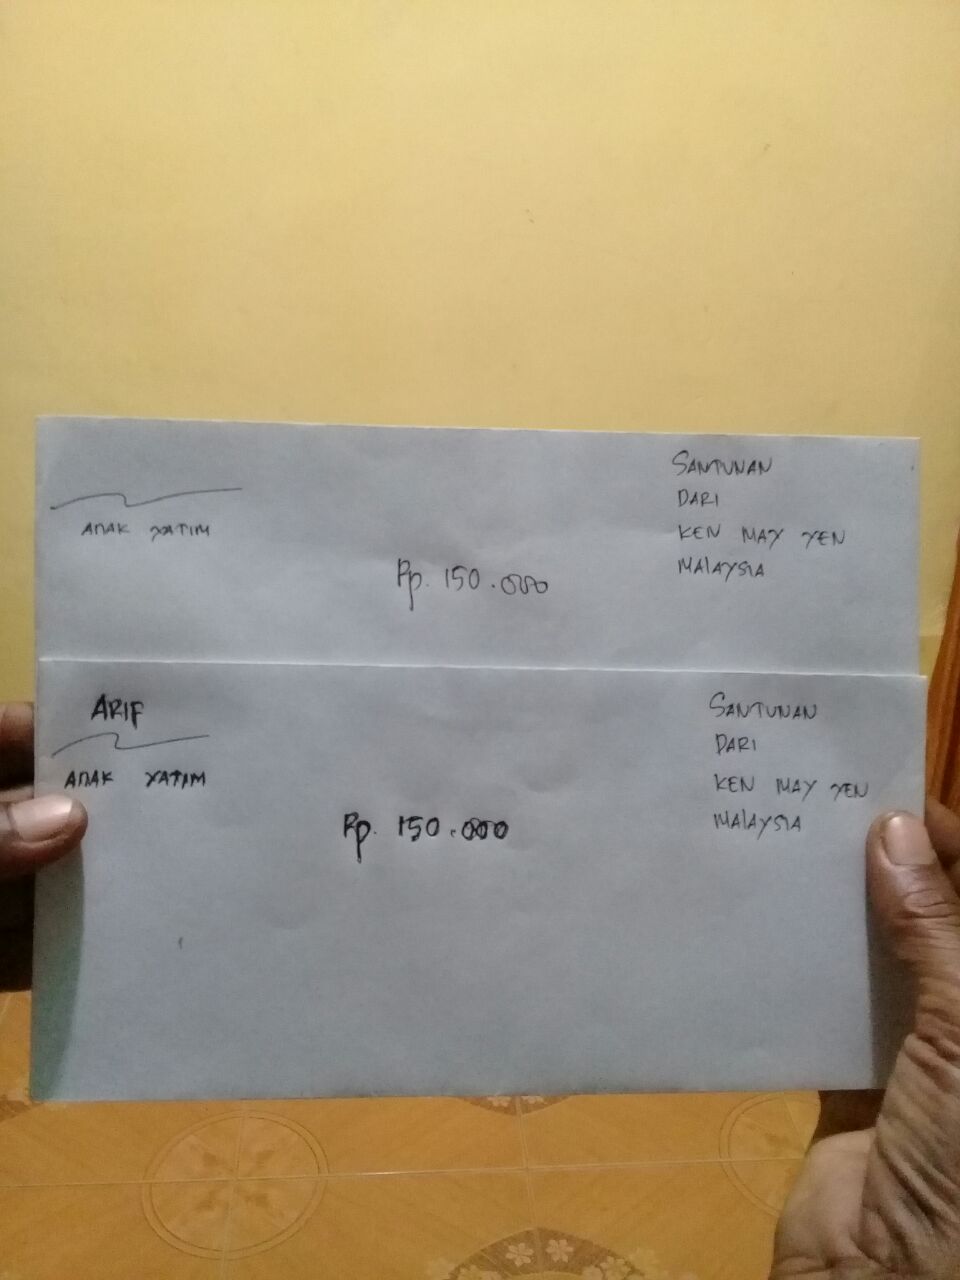 SANTUNAN
DARI
KEN MAY YEN
MALAYSIA
ANAK YATIM
Rp. 150.000
ARIF
ANAK YATIM
SANTUNAN
DARI
KEN MAY YEN
MALAYSIA
Rp. 150.000